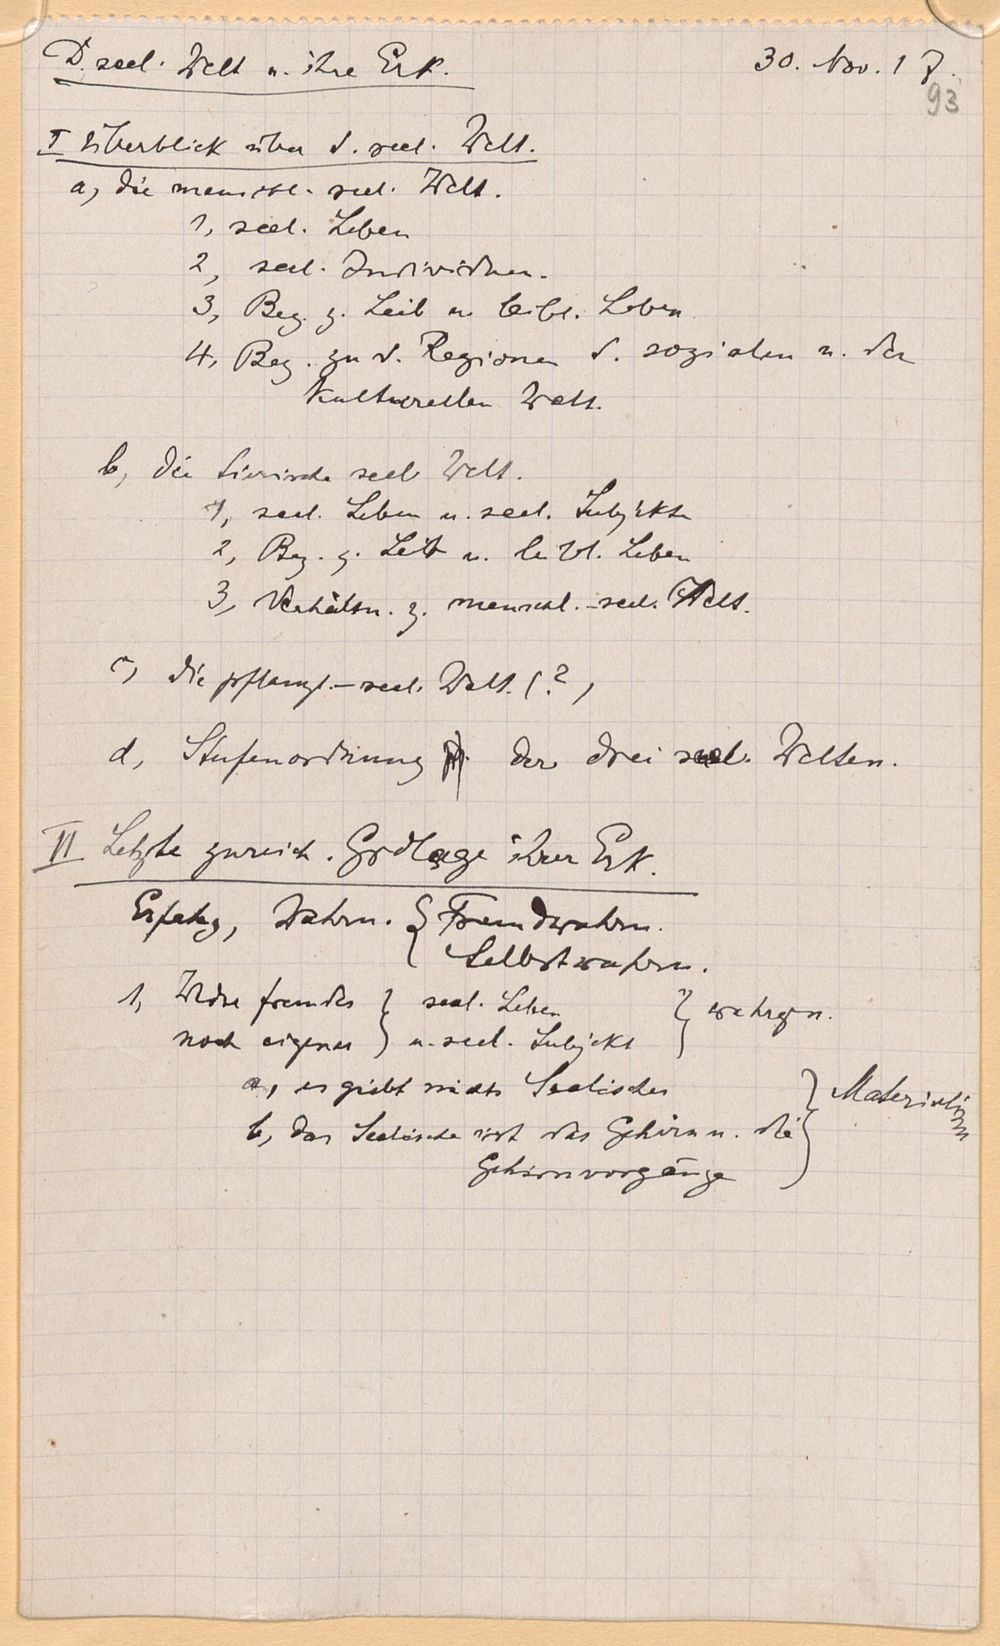 D. seel. Welt u. ihre Erk.
30. Nov. 1
93
I Überblick über d. seel. Welt.
a, die menschl. seel. Welt.
1, seel. Leben
2, seel. Individuen.
3, Bez. z. Leib u. leibl. Leben
4, Bez. zu d. Regionen d. sozialen u. der
kulturellen Welt.
b, die tierische seel Welt.
1, seel. Leben u. seel. Subjekte
2, Bez. z. Leib u. leibl. Leben
3, Verhältn. z. menschl.-seel. Welt.
c, die pflanzl.-seel. Welt. (?)
d, Stufenordnung der drei seel. Welten.
II Letzte zureich. Grdlage ihrer Erk.
Erfahrg, Wahrn. { Fremdwahrn.
Selbstwahrn.
1, Weder fremdes } seel. Leben } wahrgen.
noch eigenes } u. seel. Subjekt
a, es giebt nichts Seelisches } Materialism
b, das Seelische ist das Gehirn u. die
Gehirnvorgänge